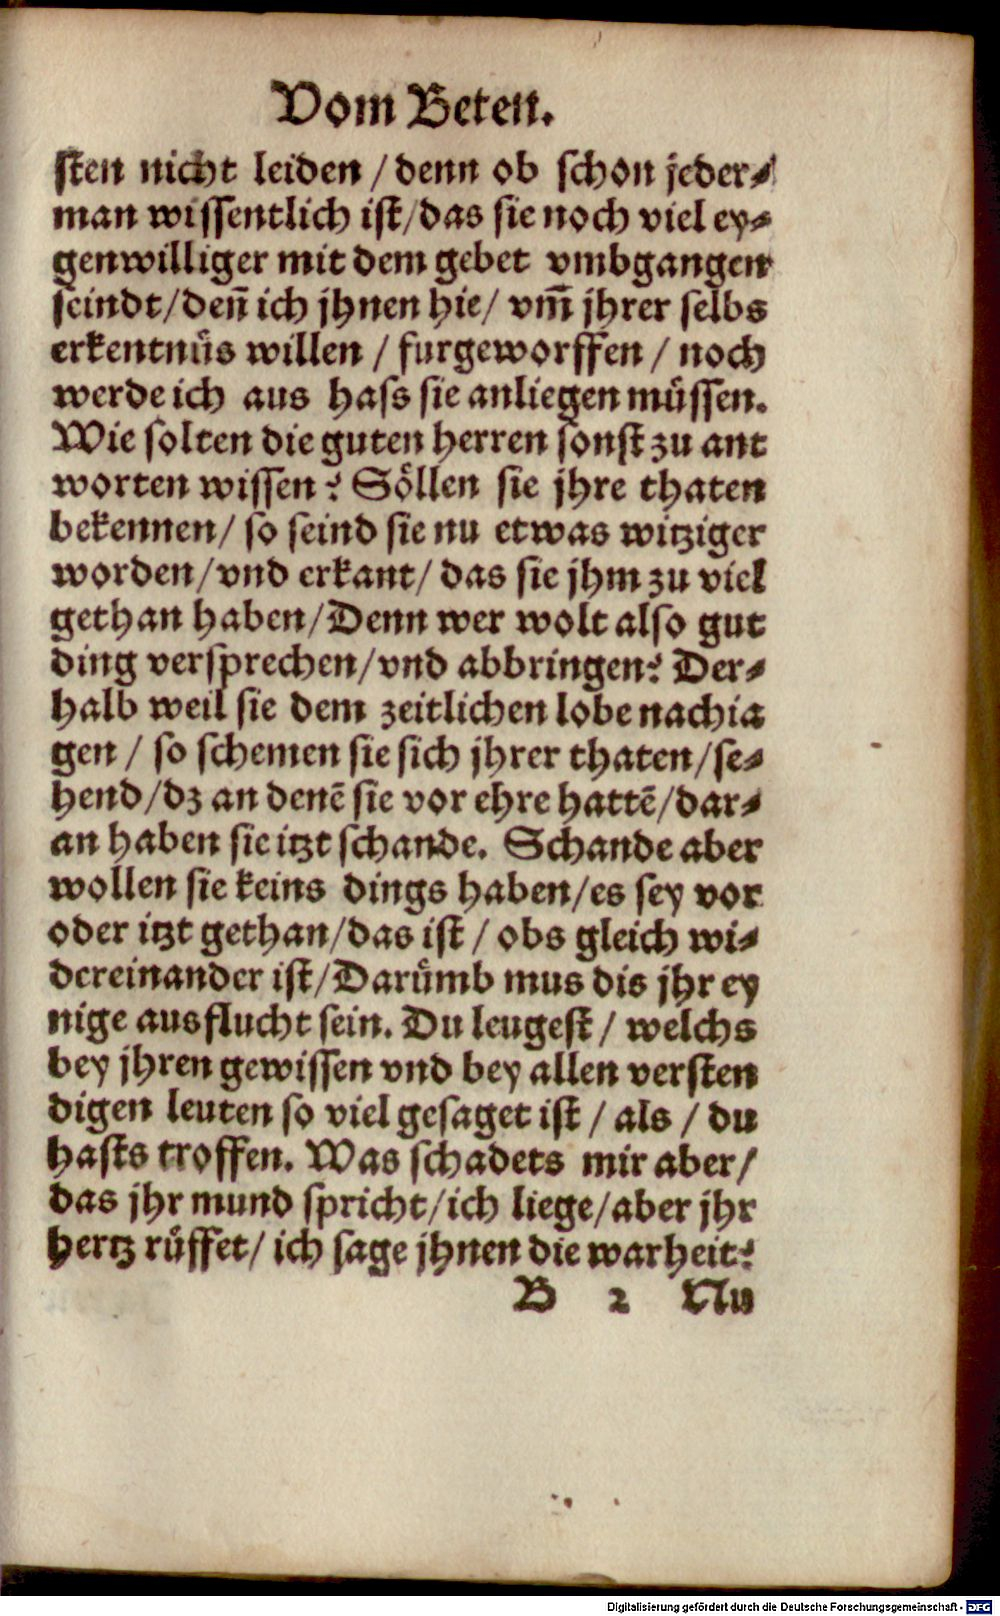 Vom Beten.
sten nicht leiden / denn ob schon jeder⸗
man wissentlich ist/das sie noch viel ey⸗
genwilliger mit dem gebet vmbgangen
seindt/deñ ich jhnen hie/ vm̃ jhrer selbs
erkentnüs willen / furgeworffen / noch
werde ich aus hass sie anliegen müssen.
Wie solten die guten herren sonst zu ant
worten wissen? Söllen sie jhre thaten
bekennen/ so seind sie nu etwas witziger
worden/vnd erkant/ das sie jhm zu viel
gethan haben/Denn wer wolt also gut
ding versprechen/vnd abbringen? Der⸗
halb weil sie dem zeitlichen lobe nachia
gen / so schemen sie sich jhrer thaten/se⸗
hend/dz an denē sie vor ehre hattē/dar⸗
an haben sie itzt schande. Schande aber
wollen sie keins dings haben/es sey vor
oder itzt gethan/das ist / obs gleich wi⸗
dereinander ist/Darümb mus dis jhr ey
nige ausflucht sein. Du leugest / welchs
bey jhren gewissen vnd bey allen versten
digen leuten so viel gesaget ist / als / du
hasts troffen. Was schadets mir aber/
das jhr mund spricht/ich liege/aber jhr
hertz rüffet/ ich sage jhnen die warheit?
B 2 Nu
Digitalisierung gefördert durch die Deutsche Forschungsgemeinschaft - DFG